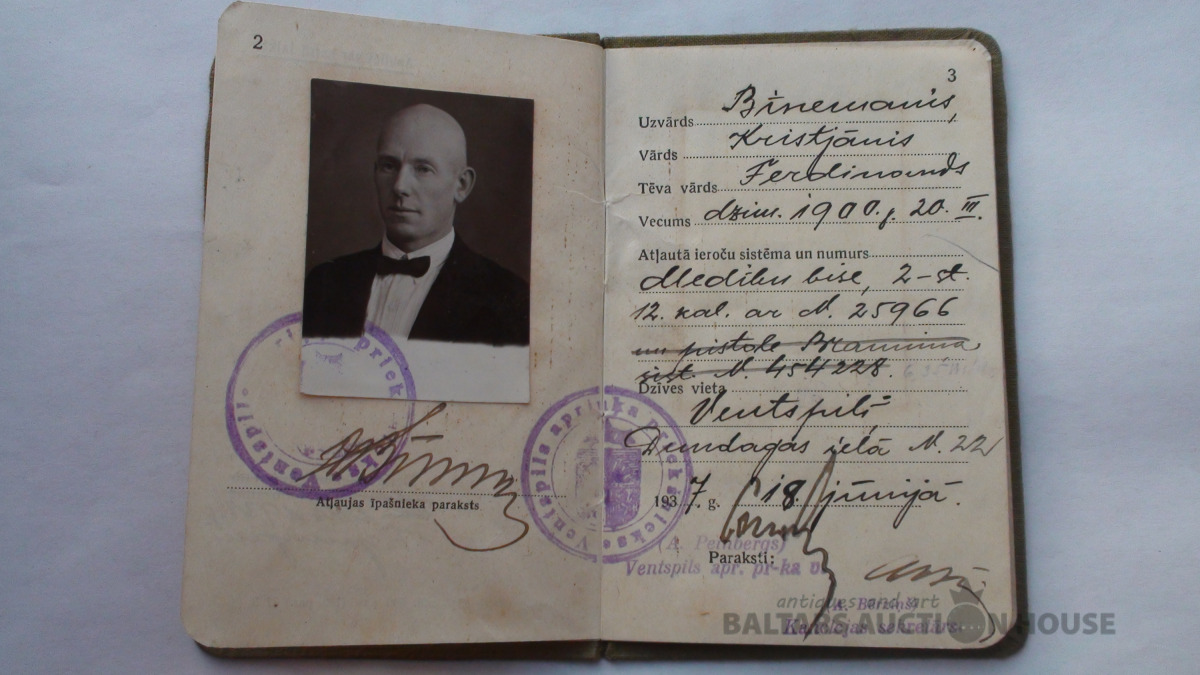 2
Atļaujas īpašnieka paraksts
3
Uzvārds Bīnemanis,
Vārds Kristjānis
Tēva vārds Ferdinands
Vecums dzim. 1900. g. 20. III.
Atļautā ieroču sistēma un numurs
Mediību bise, 2-st.
12. kal. ar N. 25966
un pistole Brauniņa
sist. N. 454228.
Dzīves vieta
Ventspilī,
Dundagas ielā N. 22
1937. g. 18. jūnijā.
Ventspils apriņķa priekšnieks
(A. Pembergs)
Paraksti:
Ventspils apr. pr-ka v.
(A. Bērziņš)
Kanclejas sekretārs
antiques and art
BALTARS AUCTION HOUSE